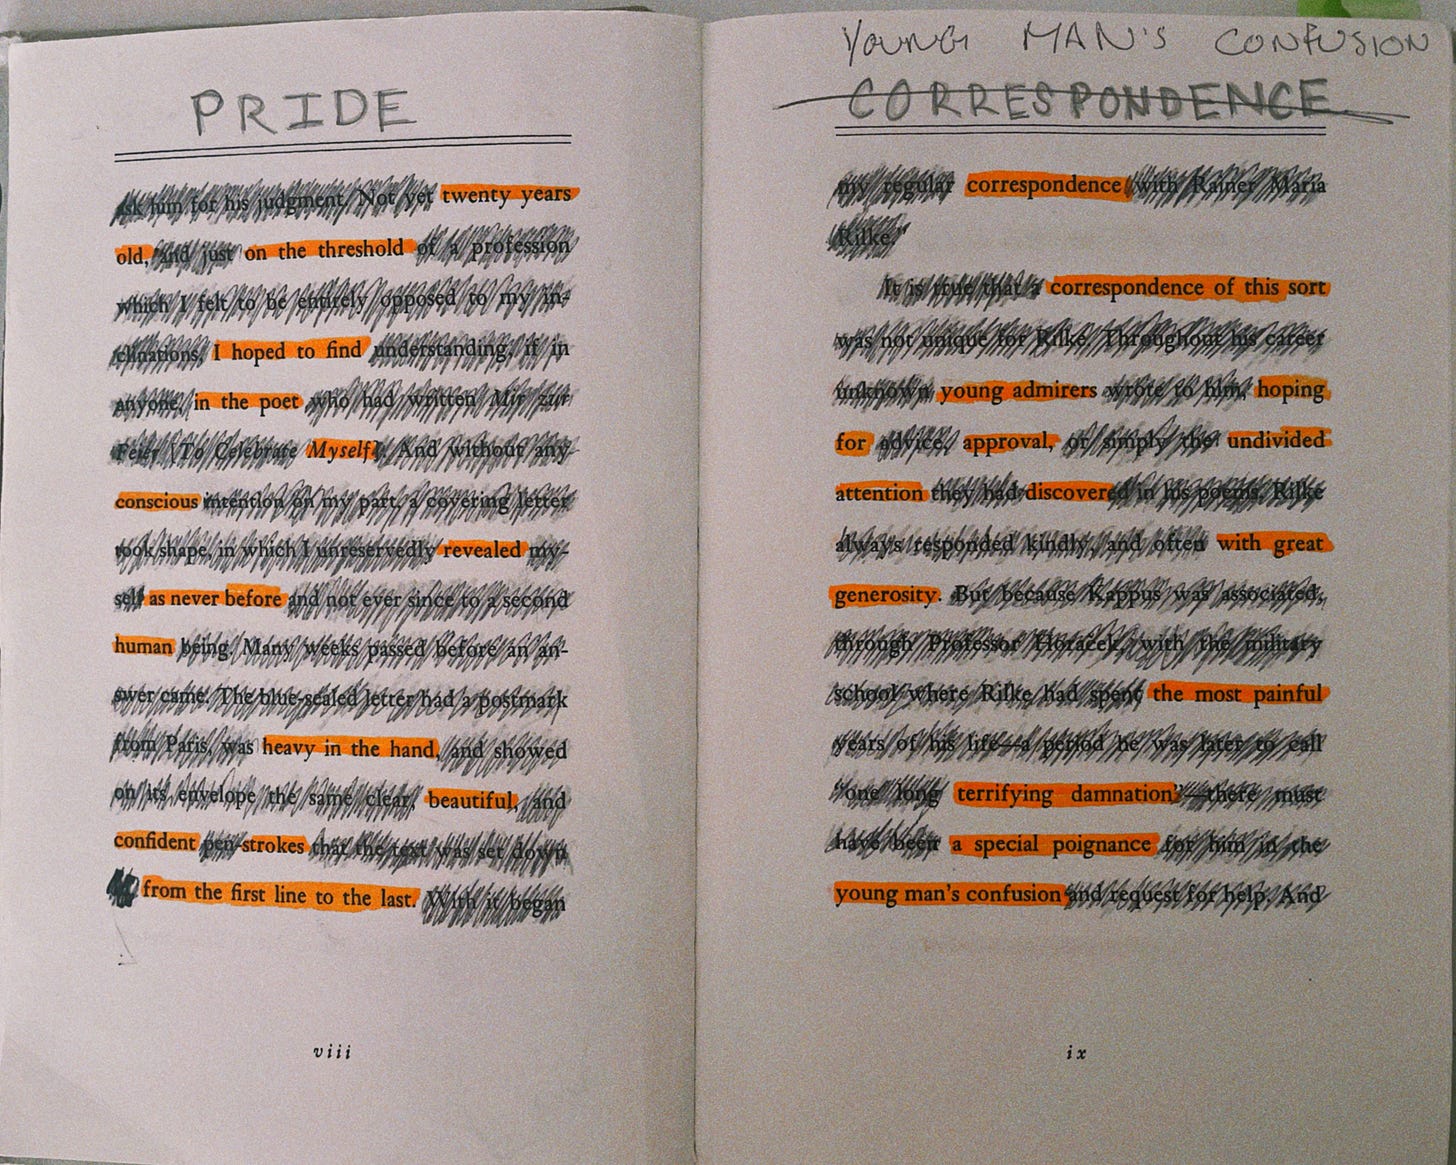 PRIDE
Ask him for his judgment. Not yet twenty years
old, and just on the threshold of a profession
which I felt to be entirely opposed to my in-
clinations, I hoped to find understanding, if in
anyone, in the poet who had written Mir zur
Feier [To Celebrate Myself]. And without any
conscious intention on my part, a covering letter
took shape, in which I unreservedly revealed my-
self as never before and not ever since to a second
human being. Many weeks passed before an an-
swer came. The blue-sealed letter had a postmark
from Paris, was heavy in the hand, and showed
on its envelope the same clear, beautiful, and
confident pen-strokes that the text was set down
from the first line to the last. With it began
viii
YOUNG MAN'S CONFUSION
CORRESPONDENCE
my regular correspondence with Rainer Maria
Rilke."
It is true that a correspondence of this sort
was not unique for Rilke. Throughout his career
unknown young admirers wrote to him, hoping
for advice, approval, or simply the undivided
attention they had discovered in his poems. Rilke
always responded kindly, and often with great
generosity. But because Kappus was associated,
through Professor Horaček, with the military
school where Rilke had spent the most painful
years of his life—a period he was later to call
"one long terrifying damnation"—there must
have been a special poignance for him in the
young man's confusion and request for help. And
ix